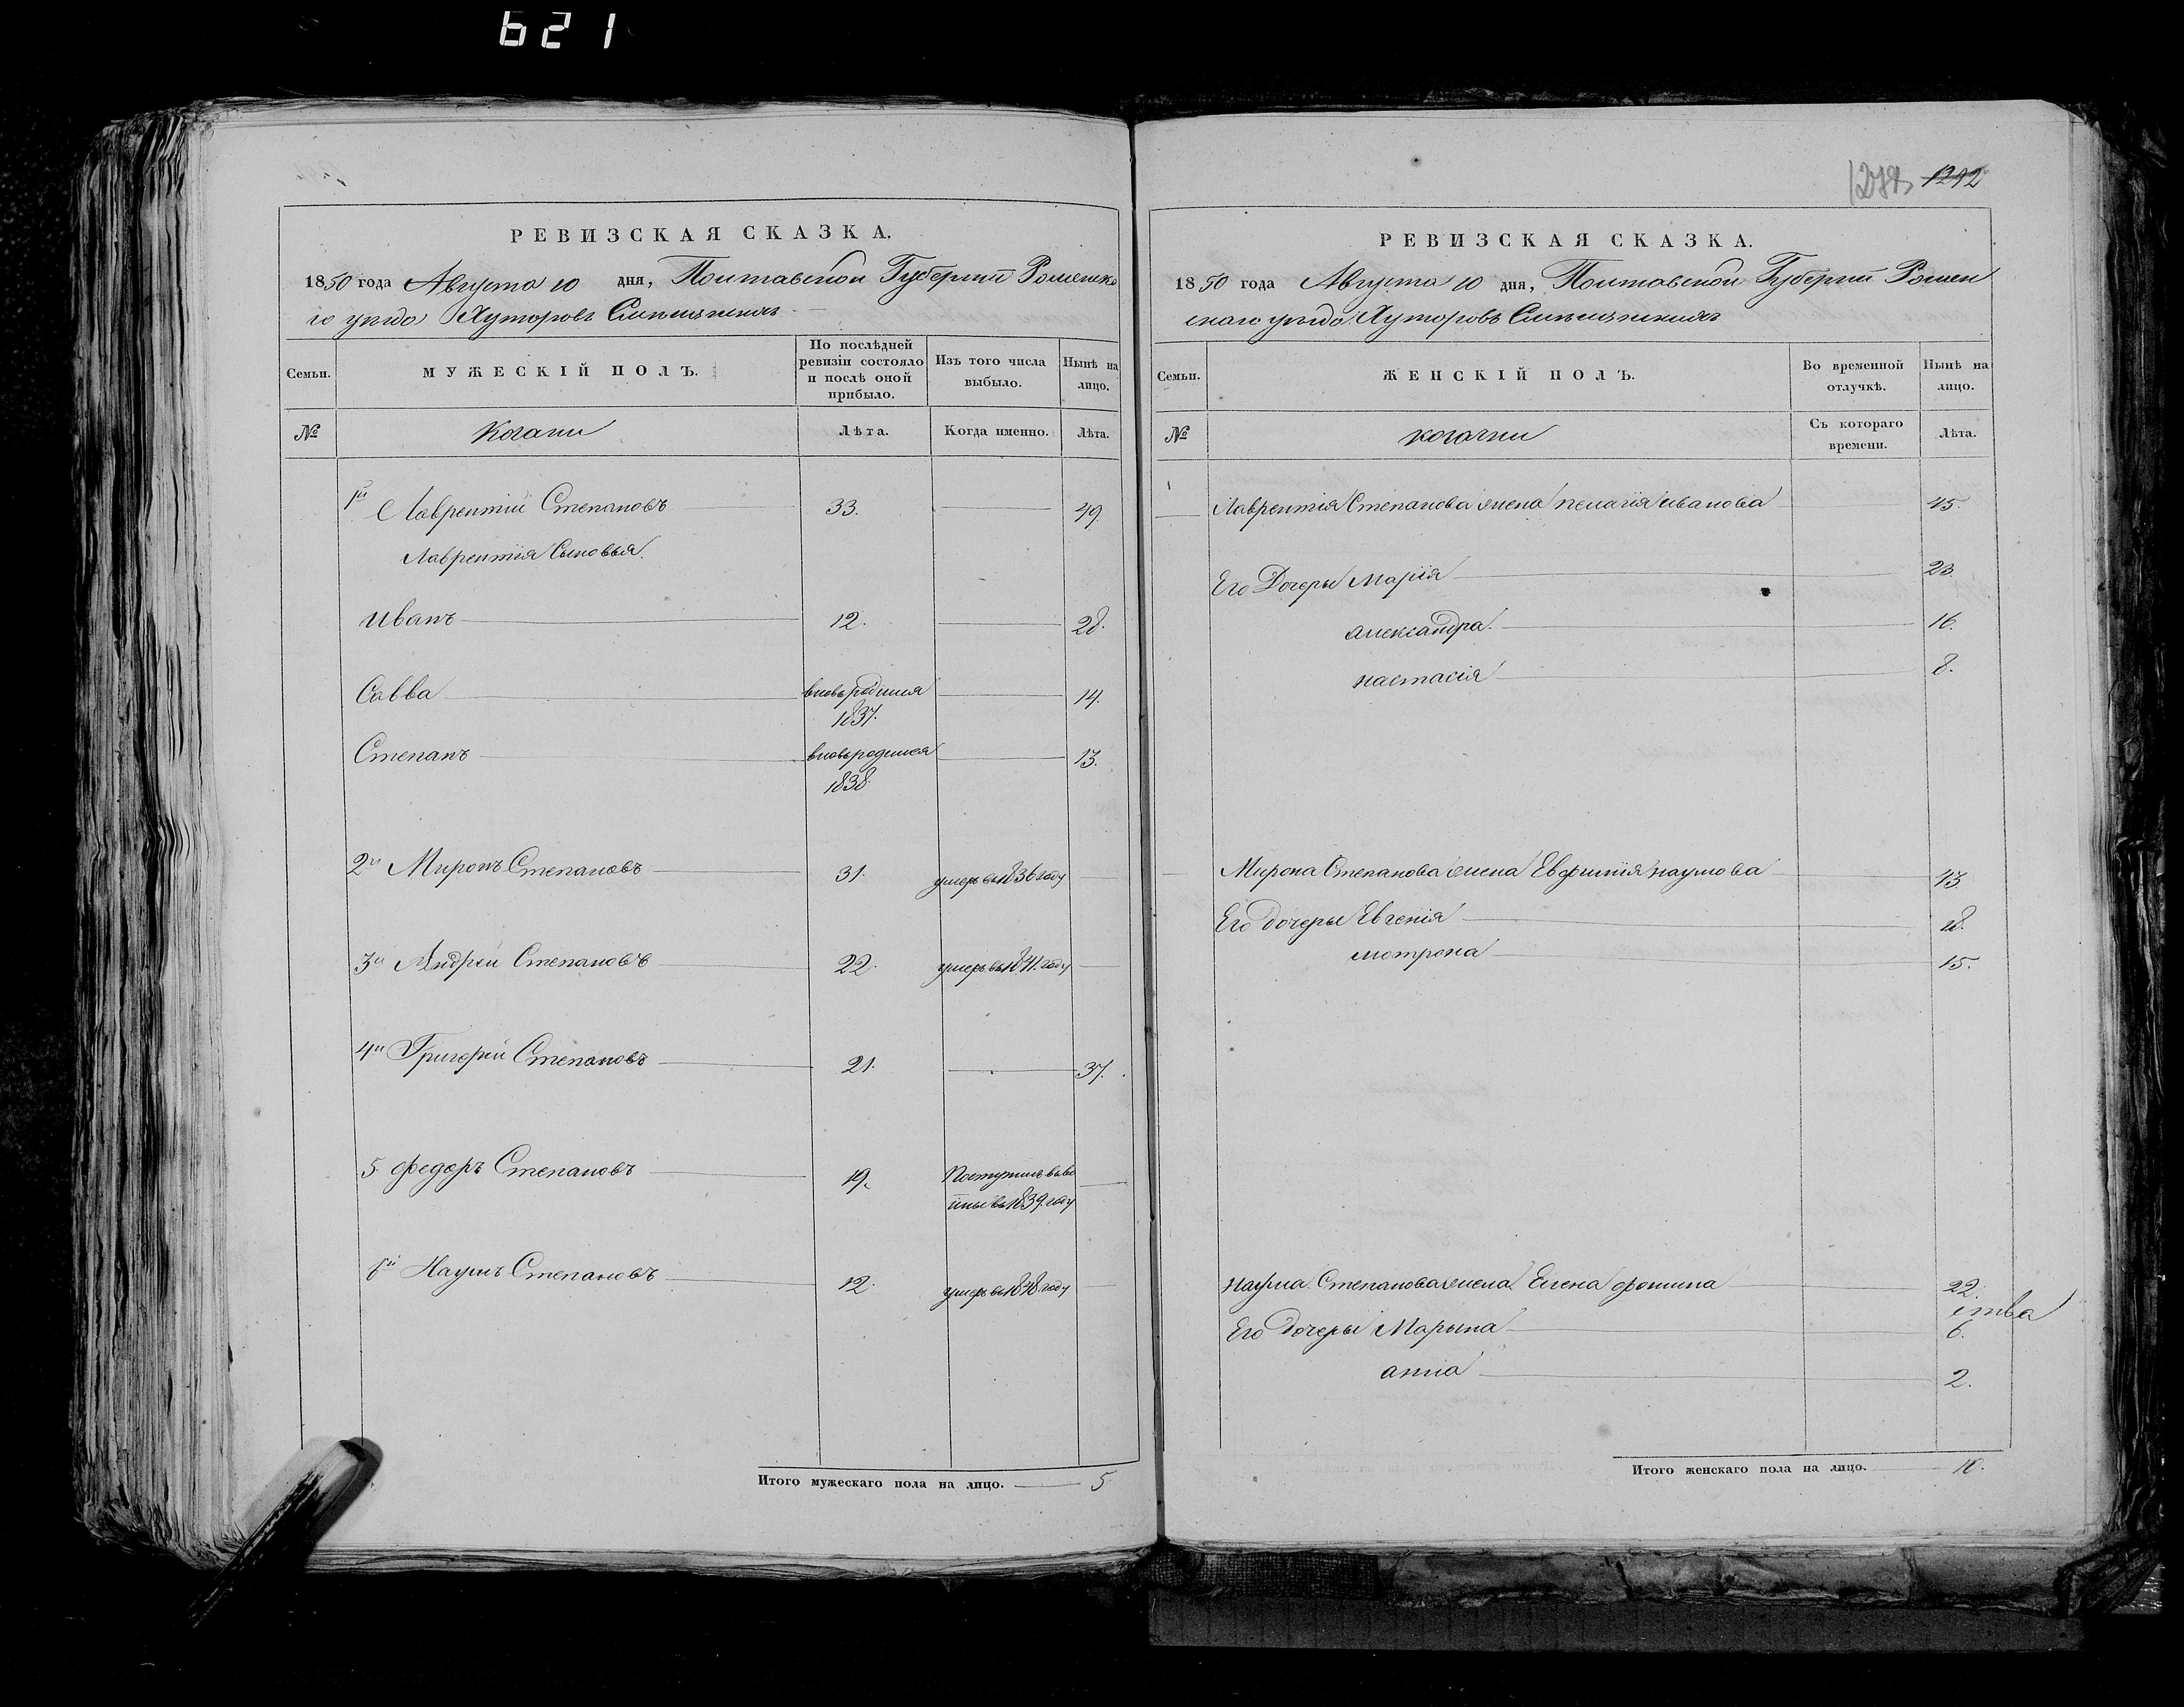 621
РЕВИЗСКАЯ СКАЗКА.
1850 года Августа 10 дня, Полтавской Губерніи Роменско
го уезда Хуторовъ
Семьи.
МУЖЕСКІЙ ПОЛЪ.
По послѣдней ревизіи состояло и послѣ оной прибыло.
Изъ того числа выбыло.
Нынѣ на лицо.
№
Лѣта.
Когда именно.
Лѣта.
1й Лаврентій Степановъ 33. 49
Лаврентія Сыновья.
Иванъ 12. 28.
Савва вновь родился 14.
1837.
Степанъ вновь родился 13.
1838.
2й Миронъ Степановъ 31. умеръ въ 1836 году
3й Андрей Степановъ 22. умеръ въ 1841. году
4й Григорій Степановъ 21. 37.
5 Федоръ Степановъ 19. Поступилъ въ во
въ 1839. году
Наумъ Степановъ 12. умеръ въ 1848. году
Итого мужескаго пола на лицо. 5
1292
РЕВИЗСКАЯ СКАЗКА.
1850 года Августа 10 дня, Полтавской Губерніи Ромен
скаго уезда Хуторовъ
Семьи.
ЖЕНСКІЙ ПОЛЪ.
Во временной отлучкѣ.
Нынѣ на лицо.
№
Съ котораго времени.
Лѣта.
Лаврентія Степанова жена пелагія иванова 45.
Его Дочеры Марія 23
александра. 16.
настасія 8.
Мирона Степанова жена Евфимія наумова 43
Его дочеры Евгенія 18.
мотрона 15.
наума Степанова жена Елена фомина 22.
Его дочеры Марына 6.
анна 2.
Итого женскаго пола на лицо. 10.